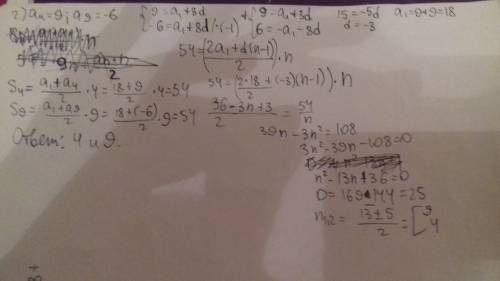 2) a₄=9; a₉=-6 { 9=a₁+3d -6=a₁+8d |·(-1) +{ 9=a₁+3d 6=-a₁-8d 15=-5d d=-3 a₁=9+9=18
54=(2a₁+d(n-1))/2 · n
S₄= (a₁+a₄)/2 · 4 = (18+9)/2 · 4=54 54=(2·18+(-3)(n-1))/2 · n
S₉= (a₁+a₉)/2 · 9 = (18+(-6))/2 · 9=54 (36-3n+3)/2 = 54/n
Ответ: 4 и 9. 39n-3n²=108
3n²-39n-108=0
n²-13n+36=0
D=169-144=25
n₁,₂= (13±5)/2 =[ 9 4